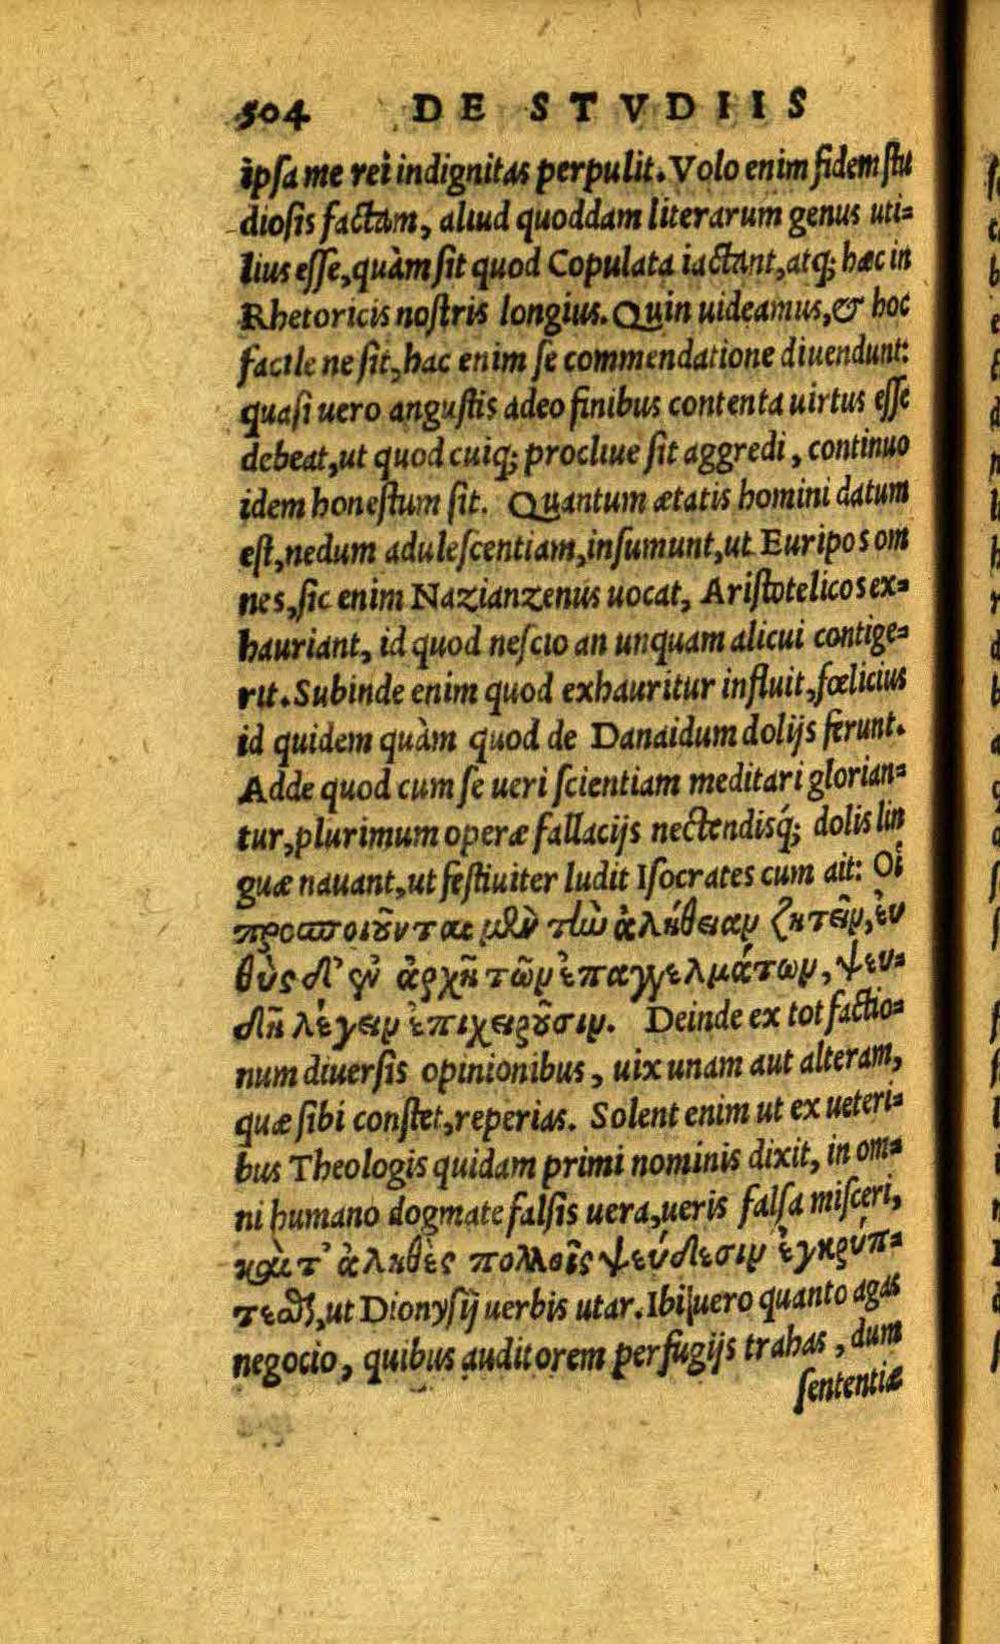 504 DE STVDIIS
ipsa me rei indignitas perpulit. Volo enim fidem stu
diosis factam, aliud quoddam literarum genus uti=
lius esse, quàm sit quod Copulata iactant, atq; hæc in
Rhetoricis nostris longius. Quin uideamus, & hoc
facile ne sit, hac enim se commendatione diuendunt:
quasi uero angustis adeo finibus contenta uirtus esse
debeat, ut quod cuiq; procliue sit aggredi, continuo
idem honestum sit. Quantum ætatis homini datum
est, nedum adulescentiam, insumunt, ut Euripos om
nes, sic enim Nazianzenus uocat, Aristotelicos ex=
hauriant, id quod nescio an unquam alicui contige=
rit. Subinde enim quod exhauritur influit, fœlicius
id quidem quàm quod de Danaidum dolijs ferunt.
Adde quod cum se ueri scientiam meditari glorian=
tur, plurimum operæ fallacijs nectendisq́; dolis lin
guæ nauant, ut festiuiter ludit Isocrates cum ait: Οἱ
προσποιοῦνται μὲν τὴν ἀλήθειαν ζητεῖν, εὐ
θὺς δ' ἐν ἀρχῇ τῶν ἐπαγγελμάτων, ψευ=
δῆ λέγειν ἐπιχειροῦσιν. Deinde ex tot factio=
num diuersis opinionibus, uix unam aut alteram,
quæ sibi constet, reperias. Solent enim ut ex ueteri=
bus Theologis quidam primi nominis dixit, in om=
ni humano dogmate falsis uera, ueris falsa misceri,
καὶ τ' ἀληθὲς πολλοῖς ψεύδεσιν ἐγκρύπ=
τεσθαι, ut Dionysij uerbis utar. Ibi uero quanto agas
negocio, quibus auditorem perfugijs trahas, dum
sententiæ